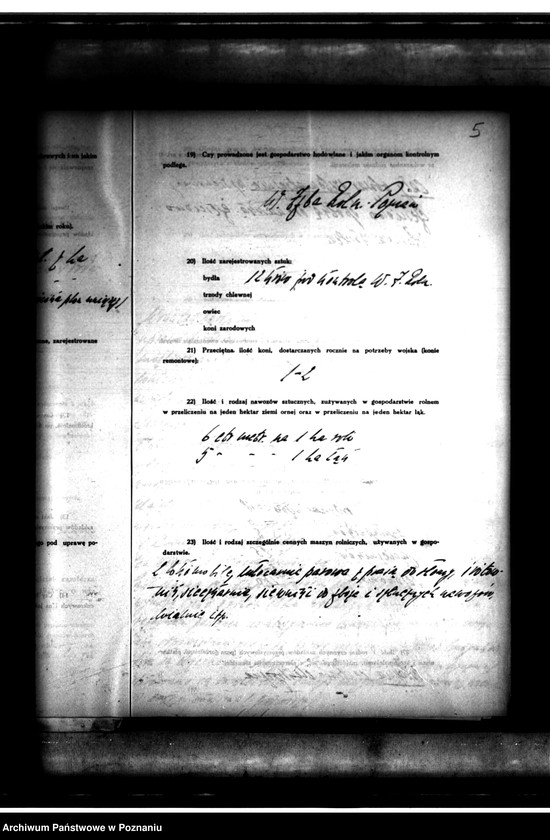 5
owych i na jakim
m roku).
zne, zarejestrowane
go pod uprawę po-
19) Czy prowadzone jest gospodarstwo hodowlane i jakim organom kontrolnym
podlega.
W. Izba Roln. Poznań
20) Ilość zarejestrowanych sztuk:
bydła 12 krów pod kontrolą W. I. Roln.
trzody chlewnej
owiec
koni zarodowych
21) Przeciętna ilość koni, dostarczanych rocznie na potrzeby wojska (konie
remontowe):
1-2
22) Ilość i rodzaj nawozów sztucznych, zużywanych w gospodarstwie rolnem
w przeliczeniu na jeden hektar ziemi ornej oraz w przeliczeniu na jeden hektar łąk.
6 ctr. metr. na 1 ha roli
5 " - - 1 ha łąk
23) Ilość i rodzaj szczególnie cennych maszyn rolniczych, używanych w gospo-
darstwie.
2 lokomobile, młocarnia parowa z prasą do słomy,
siewniki do zboża i sztucznych nawozów,
itp.
Archiwum Państwowe w Poznaniu